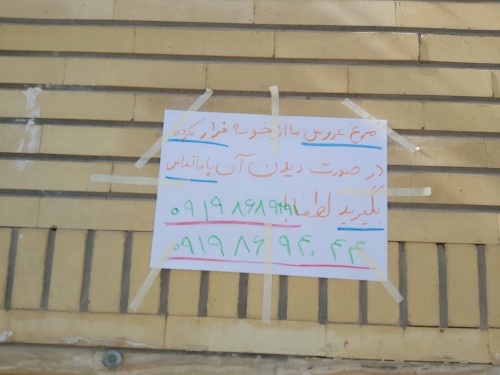 مرغ عروس ما از خونه فرار کرده
در صورت دیدن آن با ما تماس
بگیرید لطفا
۰۹۱۹۸۶۹۴۰۴۴